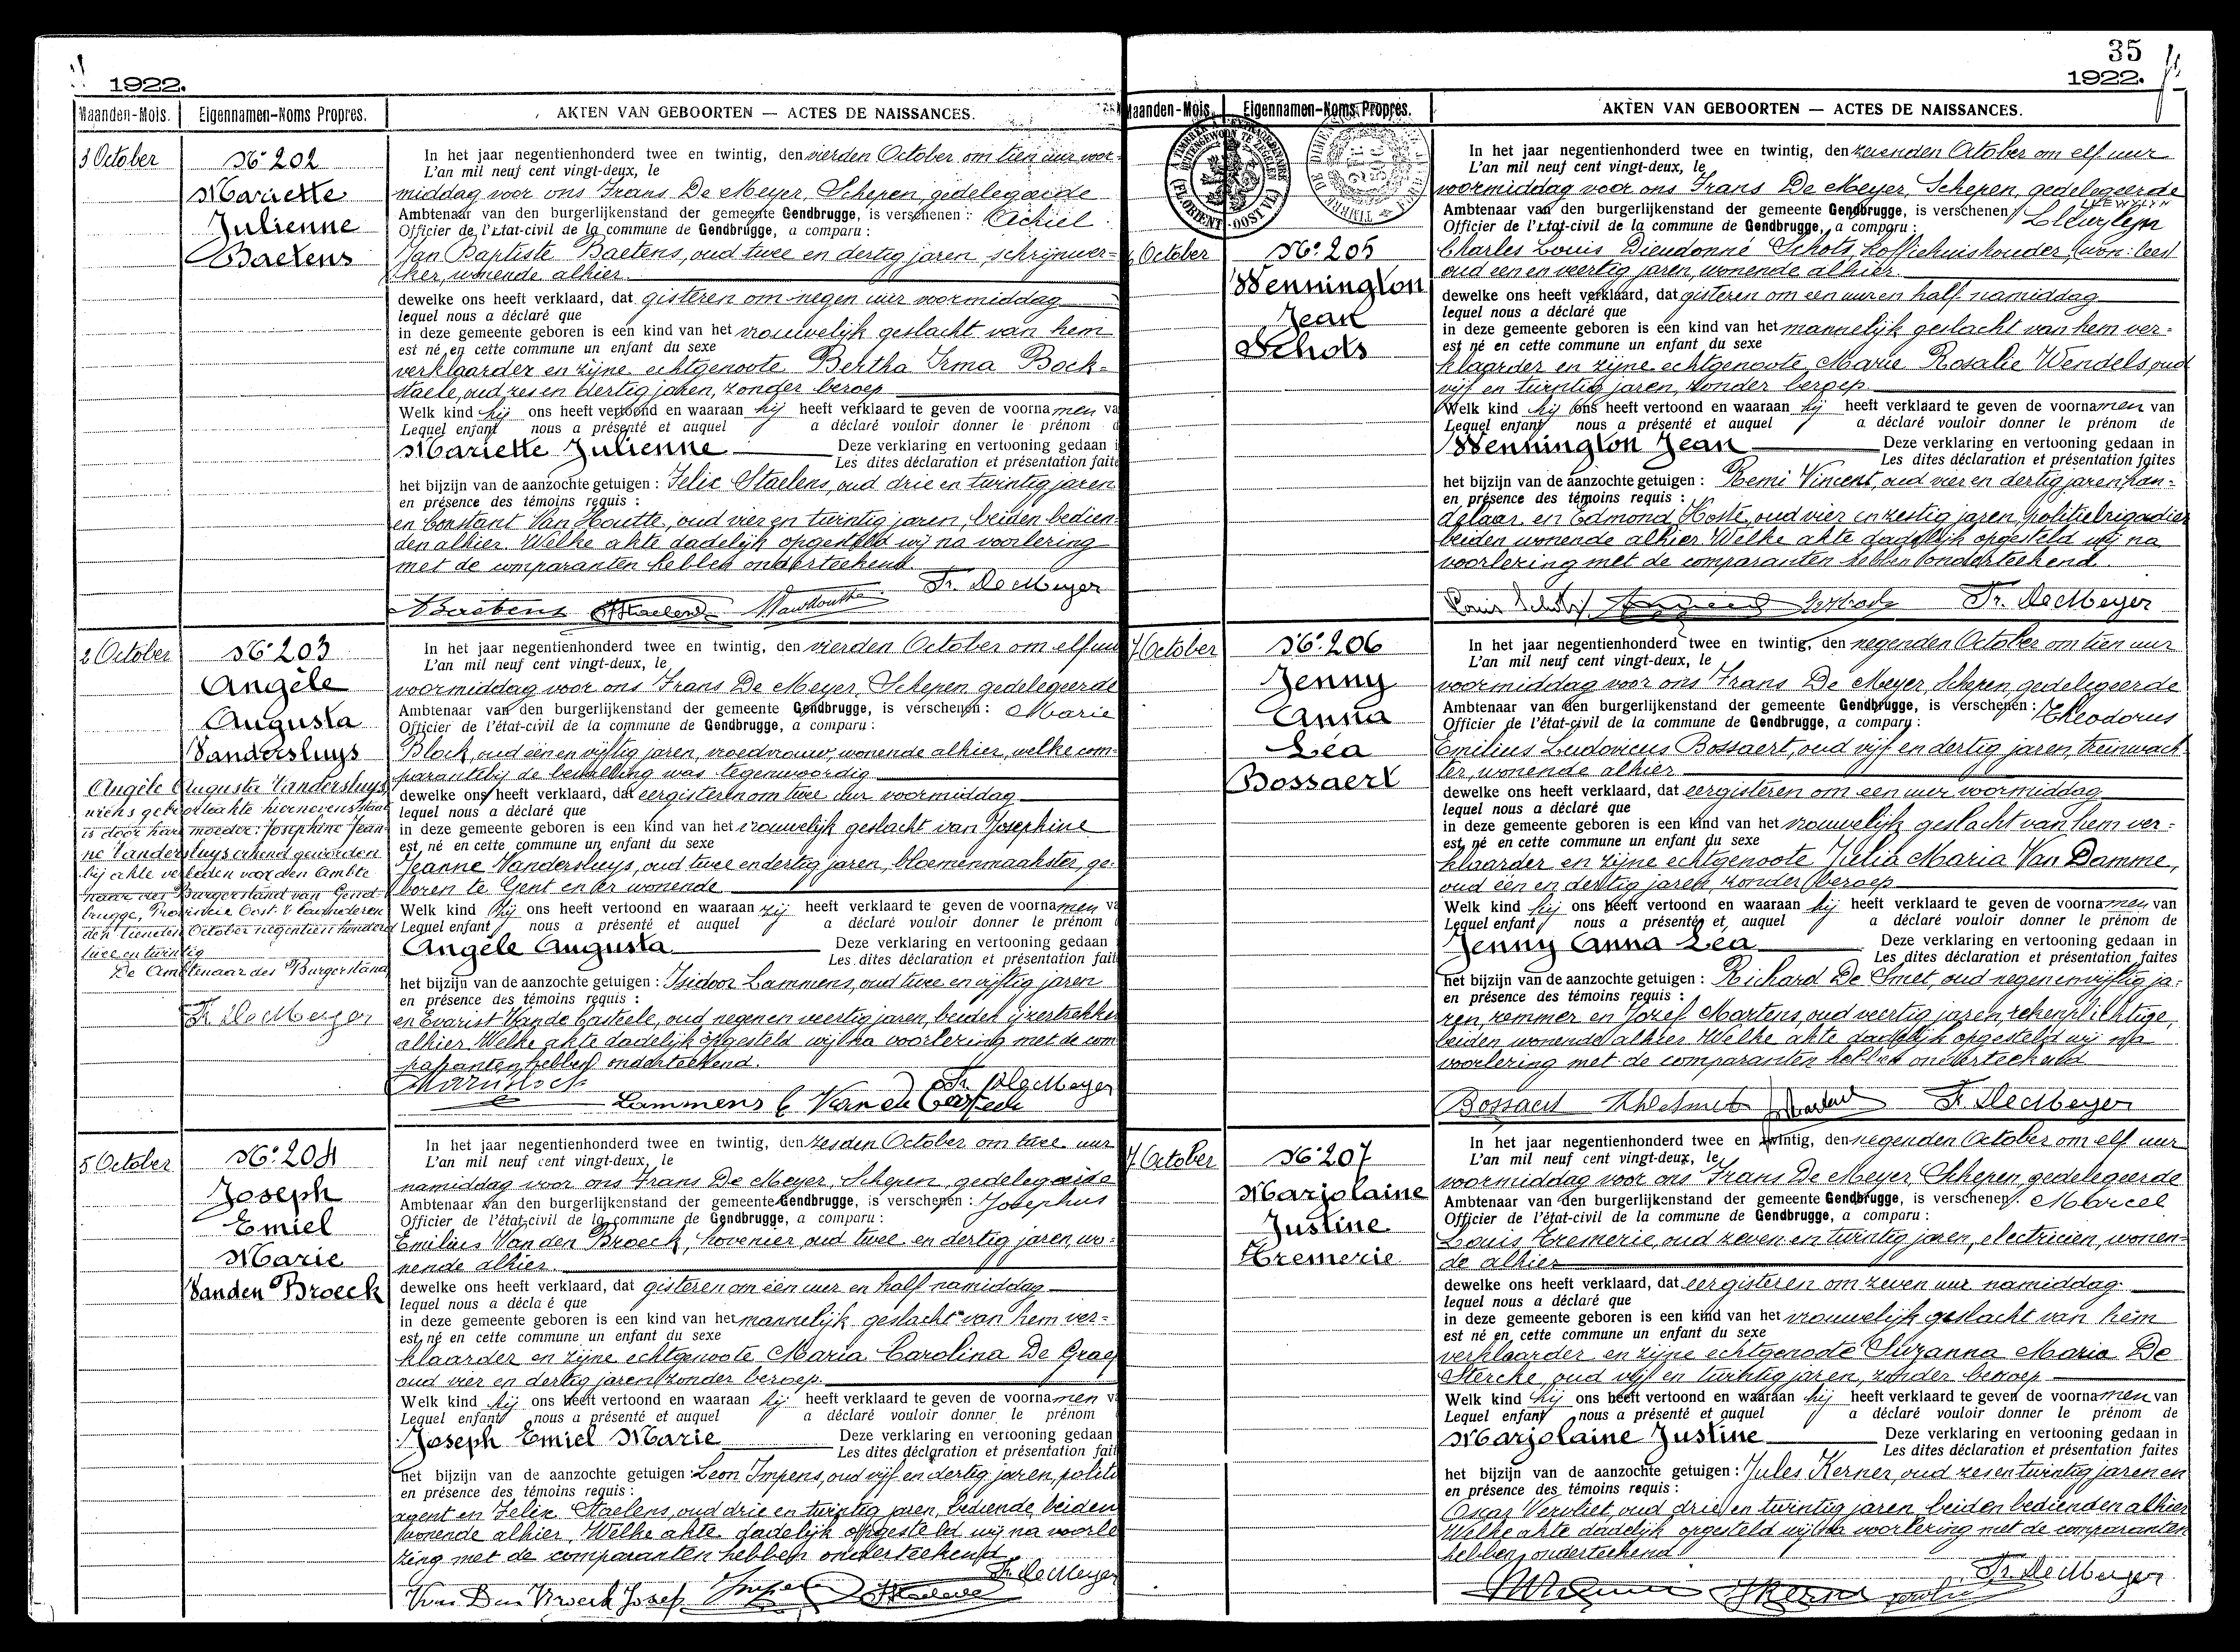 1922.
Maanden-Mois. Eigennamen-Noms Propres. AKTEN VAN GEBOORTEN — ACTES DE NAISSANCES.
3 October
No. 202
Mariette
Julienne
Baetens
In het jaar negentienhonderd twee en twintig, den vierden October om tien uur voor-
L'an mil neuf cent vingt-deux, le
middag voor ons Frans De Meyer, Schepen, gedelegeerde
Ambtenaar van den burgerlijkenstand der gemeente Gendbrugge, is verschenen : Achiel
Officier de l'état-civil de la commune de Gendbrugge, a comparu :
Jan Baptiste Baetens, oud twee en dertig jaren, schrijnwer-
ker, wonende alhier
dewelke ons heeft verklaard, dat gisteren om negen uur voormiddag
lequel nous a déclaré que
in deze gemeente geboren is een kind van het vrouwelijk geslacht van hem
est né en cette commune un enfant du sexe
verklaarder en zijne echtgenoote Bertha Irma Bock-
staele, oud zes en dertig jaren, zonder beroep
Welk kind hij ons heeft vertoond en waaraan hij heeft verklaard te geven de voornamen va
Lequel enfant nous a présenté et auquel a déclaré vouloir donner le prénom d
Mariette Julienne Deze verklaring en vertooning gedaan i
Les dites déclaration et présentation faite
het bijzijn van de aanzochte getuigen : Felix Staelens, oud drie en twintig jaren
en présence des témoins requis :
en Constant Van Houtte, oud vier en twintig jaren, beiden bedien-
den alhier. Welke akte dadelijk opgesteld wij na voorlezing
met de comparanten hebben onderteekend.
Baetens FStaelens VanHoutte Fr. De Meyer
2 October
No. 203
Angèle
Augusta
Vandersluys
Angèle Augusta Vandersluys,
wiens geboorteakte hiernevens staat
is door hare moeder: Josephine Jean-
ne Vandersluys erkend geworden
bij akte verleden voor den Ambte-
naar der Burgerstand van Gend-
brugge, Provincie Oost-Vlaanderen
den tienden October negentien honderd
twee en twintig
De Ambtenaar des Burgerstand
Fr. De Meyer
In het jaar negentienhonderd twee en twintig, den vierden October om elf uur
L'an mil neuf cent vingt-deux, le
voormiddag voor ons Frans De Meyer, Schepen gedelegeerde
Ambtenaar van den burgerlijkenstand der gemeente Gendbrugge, is verschenen : Marie
Officier de l'état-civil de la commune de Gendbrugge, a comparu :
Block, oud één en vijftig jaren, vroedvrouw, wonende alhier, welke com-
parante bij de bevalling was tegenwoordig
dewelke ons heeft verklaard, dat eergisteren om twee uur voormiddag
lequel nous a déclaré que
in deze gemeente geboren is een kind van het vrouwelijk geslacht van Josephine
est né en cette commune un enfant du sexe
Jeanne Vandersluys, oud twee en dertig jaren, bloemenmaakster, ge-
boren te Gent en er wonende
Welk kind zij ons heeft vertoond en waaraan zij heeft verklaard te geven de voornamen va
Lequel enfant nous a présenté et auquel a déclaré vouloir donner le prénom d
Angèle Augusta Deze verklaring en vertooning gedaan
Les dites déclaration et présentation fait
het bijzijn van de aanzochte getuigen : Isidoor Lammens, oud twee en vijftig jaren
en présence des témoins requis :
en Evarist Van de Casteele, oud negen en veertig jaren, beiden ijzertrekker
alhier. Welke akte dadelijk opgesteld wij na voorlezing met de com-
paranten hebben onderteekend.
Lammens E Van de Casteele Fr. De Meyer
5 October
No. 204
Joseph
Emiel
Marie
Vanden Broeck
In het jaar negentienhonderd twee en twintig, den zesden October om twee uur
L'an mil neuf cent vingt-deux, le
namiddag voor ons Frans De Meyer, Schepen, gedelegeerde
Ambtenaar van den burgerlijkenstand der gemeente Gendbrugge, is verschenen : Josephus
Officier de l'état-civil de la commune de Gendbrugge, a comparu :
Emilius Van den Broeck, hovenier, oud twee en dertig jaren, wo-
nende alhier.
dewelke ons heeft verklaard, dat gisteren om één uur en half namiddag
lequel nous a décla é que
in deze gemeente geboren is een kind van het mannelijk geslacht van hem ver-
est né en cette commune un enfant du sexe
klaarder en zijne echtgenoote Maria Carolina De Graef
oud vier en dertig jaren, zonder beroep.
Welk kind hij ons heeft vertoond en waaraan hij heeft verklaard te geven de voornamen v
Lequel enfant nous a présenté et auquel a déclaré vouloir donner le prénom
Joseph Emiel Marie Deze verklaring en vertooning gedaan
Les dites déclaration et présentation fait
het bijzijn van de aanzochte getuigen : Leon Impens, oud vijf en dertig jaren, politie
en présence des témoins requis :
agent en Felix Staelens, oud drie en twintig jaren, bediende, beiden
wonende alhier. Welke akte dadelijk opgesteld wij na voorle
zing met de comparanten hebben onderteekend
Fr. De Meyer
Van Den Broeck Josef Impens FStaelens
35
1922.
Maanden-Mois. Eigennamen-Noms Propres. AKTEN VAN GEBOORTEN — ACTES DE NAISSANCES.
6 October
No. 205
Wennington
Jean
Schots
In het jaar negentienhonderd twee en twintig, den zevenden October om elf uur
L'an mil neuf cent vingt-deux, le
voormiddag voor ons Frans De Meyer, Schepen, gedelegeerde
LLEWYLYN
Ambtenaar van den burgerlijkenstand der gemeente Gendbrugge, is verschenen : Llewylyn
Officier de l'état-civil de la commune de Gendbrugge, a comparu :
Charles Louis Dieudonné Schots, koffiehuishouder,
oud een en veertig jaren, wonende alhier
dewelke ons heeft verklaard, dat gisteren om een uur en half namiddag
lequel nous a déclaré que
in deze gemeente geboren is een kind van het mannelijk geslacht van hem ver-
est né en cette commune un enfant du sexe
klaarder en zijne echtgenoote, Marie Rosalie Wendels, oud
vijf en twintig jaren, zonder beroep
Welk kind hij ons heeft vertoond en waaraan hij heeft verklaard te geven de voornamen van
Lequel enfant nous a présenté et auquel a déclaré vouloir donner le prénom de
Wennington Jean Deze verklaring en vertooning gedaan in
Les dites déclaration et présentation faites
het bijzijn van de aanzochte getuigen : Remi Vincent, oud vier en dertig jaren, han-
en présence des témoins requis :
delaar en Edmond Hoste, oud vier en zestig jaren, politiebrigadier
beiden wonende alhier. Welke akte dadelijk opgesteld wij na
voorlezing met de comparanten hebben onderteekend.
Louis Schots Fr. De Meyer
7 October
No. 206
Jenny
Anna
Léa
Bossaert
In het jaar negentienhonderd twee en twintig, den negenden October om tien uur
L'an mil neuf cent vingt-deux, le
voormiddag voor ons Frans De Meyer, Schepen, gedelegeerde
Ambtenaar van den burgerlijkenstand der gemeente Gendbrugge, is verschenen : Theodorus
Officier de l'état-civil de la commune de Gendbrugge, a comparu :
Emilius Ludovicus Bossaert, oud vijf en dertig jaren, treinwach-
ter, wonende alhier
dewelke ons heeft verklaard, dat eergisteren om een uur voormiddag
lequel nous a déclaré que
in deze gemeente geboren is een kind van het vrouwelijk geslacht van hem ver-
est né en cette commune un enfant du sexe
klaarder en zijne echtgenoote Julia Maria Van Damme,
oud één en dertig jaren, zonder beroep
Welk kind hij ons heeft vertoond en waaraan hij heeft verklaard te geven de voornamen van
Lequel enfant nous a présenté et auquel a déclaré vouloir donner le prénom de
Jenny Anna Lea Deze verklaring en vertooning gedaan in
Les dites déclaration et présentation faites
het bijzijn van de aanzochte getuigen : Richard De Smet, oud negen en vijftig ja-
en présence des témoins requis :
ren, kemmer en Jozef Martens, oud veertig jaren, rekenplichtige,
beiden wonende alhier. Welke akte dadelijk opgesteld wij na
voorlezing met de comparanten hebben onderteekend
Bossaert RDeSmet JMartens Fr. De Meyer
7 October
No. 207
Marjolaine
Justine
Tremerie
In het jaar negentienhonderd twee en twintig, den negenden October om elf uur
L'an mil neuf cent vingt-deux, le
voormiddag voor ons Frans De Meyer, Schepen, gedelegeerde
Ambtenaar van den burgerlijkenstand der gemeente Gendbrugge, is verschenen : Marcel
Officier de l'état-civil de la commune de Gendbrugge, a comparu :
Louis Tremerie, oud zeven en twintig jaren, electricien, wonen-
de alhier
dewelke ons heeft verklaard, dat eergisteren om zeven uur namiddag
lequel nous a déclaré que
in deze gemeente geboren is een kind van het vrouwelijk geslacht van hem
est né en cette commune un enfant du sexe
verklaarder en zijne echtgenoote Suzanna Maria De
Stercke, oud vijf en twintig jaren, zonder beroep
Welk kind hij ons heeft vertoond en waaraan hij heeft verklaard te geven de voornamen van
Lequel enfant nous a présenté et auquel a déclaré vouloir donner le prénom de
Marjolaine Justine Deze verklaring en vertooning gedaan in
Les dites déclaration et présentation faites
het bijzijn van de aanzochte getuigen : Jules Kerner, oud zes en twintig jaren en
en présence des témoins requis :
Oscar Vervliet, oud drie en twintig jaren, beiden bedienden alhier
Welke akte dadelijk opgesteld wij na voorlezing met de comparanten
hebben onderteekend
Fr. De Meyer
JKerner